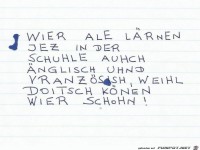 WIER ALE LÄRNEN
JEZ IN DER
SCHUHLE AUHCH
ÄNGLISCH UHND
VRANZÖSISH, WEIHL
DOITSCH KÖNEN
WIER SCHOHN!